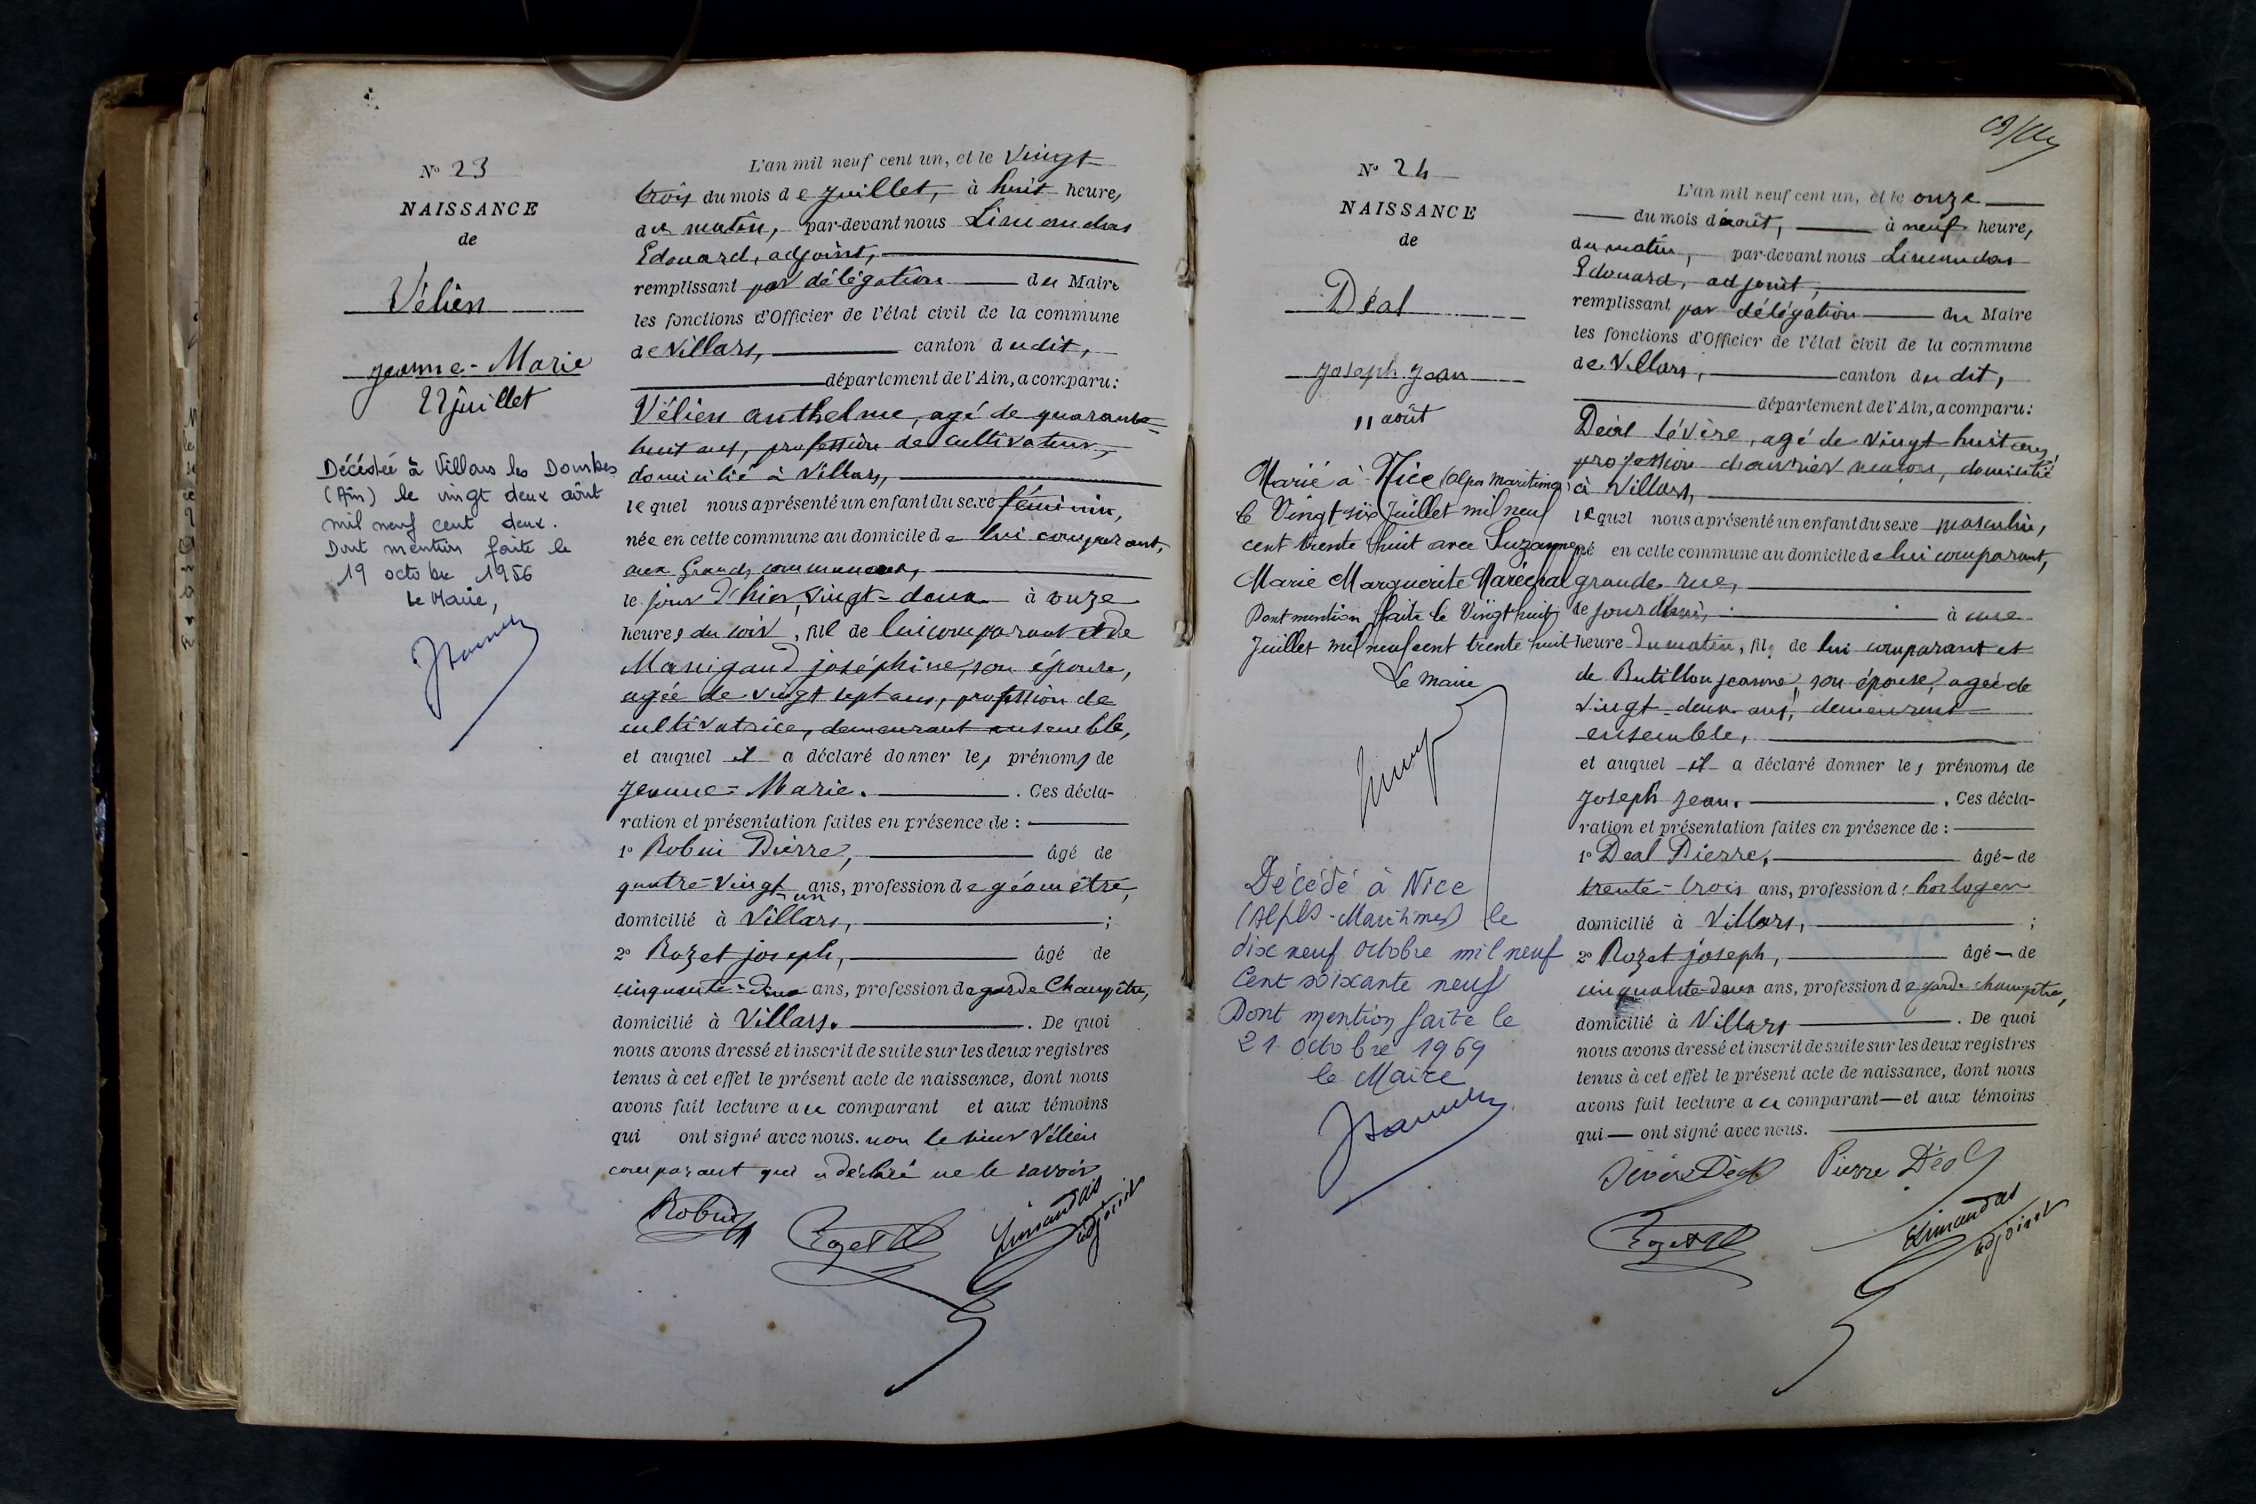 N° 23
NAISSANCE
de
Vélien
Jeanne-Marie
22 juillet
Décédée à Villars les Dombes
(Ain) le vingt deux août
mil neuf cent deux.
Dont mention faite le
19 octobre 1956
Le Maire,
L'an mil neuf cent un, et le Vingt
trois du mois de juillet, à huit heures
du matin, par-devant nous Limandas
Edouard, adjoint,
remplissant par délégation du Maire
les fonctions d'Officier de l'état civil de la commune
de Villars, canton dudit,
département de l'Ain, a comparu:
Vélien Anthelme, agé de quarante-
huit ans, profession de cultivateur,
domicilié à Villars,
lequel nous a présenté un enfant du sexe féminin,
née en cette commune au domicile de lui comparant,
aux Grands communaux,
le jour d'hier, vingt-deux à onze
heures du soir, fille de lui comparant et de
Manigand joséphine, son épouse,
agée de vingt sept ans, profession de
cultivatrice, demeurant ensemble,
et auquel il a déclaré donner les prénoms de
Jeanne-Marie. Ces décla-
ration et présentation faites en présence de :
1° Robin Pierre, âgé de
quatre-vingt-un ans, profession de géomètre,
domicilié à Villars, ;
2° Rozet joseph, âgé de
cinquante-deux ans, profession de garde Champêtre,
domicilié à Villars. De quoi
nous avons dressé et inscrit de suite sur les deux registres
tenus à cet effet le présent acte de naissance, dont nous
avons fait lecture au comparant et aux témoins
qui ont signé avec nous. non le sieur Vélien
comparant qui a déclaré ne le savoir
Robin
Rozet
Limandas
adjoint
N° 24
NAISSANCE
de
Déal
Joseph Jean
11 août
Marié à Nice (Alpes Maritimes)
le Vingt six Juillet mil neuf
cent trente huit avec Suzanne
Marie Marguerite Maréchal
Dont mention faite le Vingt huit
Juillet mil neuf cent trente huit
Le maire
Décédé à Nice
(Alpes-Maritimes) le
dix neuf octobre mil neuf
Cent soixante neuf
Dont mention faite le
21 octobre 1969
le Maire
L'an mil neuf cent un, et le onze
du mois d'août, à neuf heures
du matin, par-devant nous Limandas
Edouard, adjoint,
remplissant par délégation du Maire
les fonctions d'Officier de l'état civil de la commune
de Villars, canton dudit,
département de l'Ain, a comparu:
Déal Sévère, agé de vingt-huit ans,
profession d'ouvrier maçon, domicilié
à Villars,
lequel nous a présenté un enfant du sexe masculin,
né en cette commune au domicile de lui comparant,
grande rue,
le jour à une
heure du matin, fils de lui comparant et
de Butillon jeanne, son épouse, agée de
vingt-deux ans, demeurant
ensemble,
et auquel il a déclaré donner les prénoms de
Joseph Jean. Ces décla-
ration et présentation faites en présence de :
1° Deal Pierre, âgé de
trente-trois ans, profession d'horloger
domicilié à Villars, ;
2° Rozet joseph, âgé de
cinquante-deux ans, profession de garde champêtre,
domicilié à Villars. De quoi
nous avons dressé et inscrit de suite sur les deux registres
tenus à cet effet le présent acte de naissance, dont nous
avons fait lecture au comparant et aux témoins
qui ont signé avec nous.
Sévère Déal Pierre Déal
Rozet
Limandas
adjoint